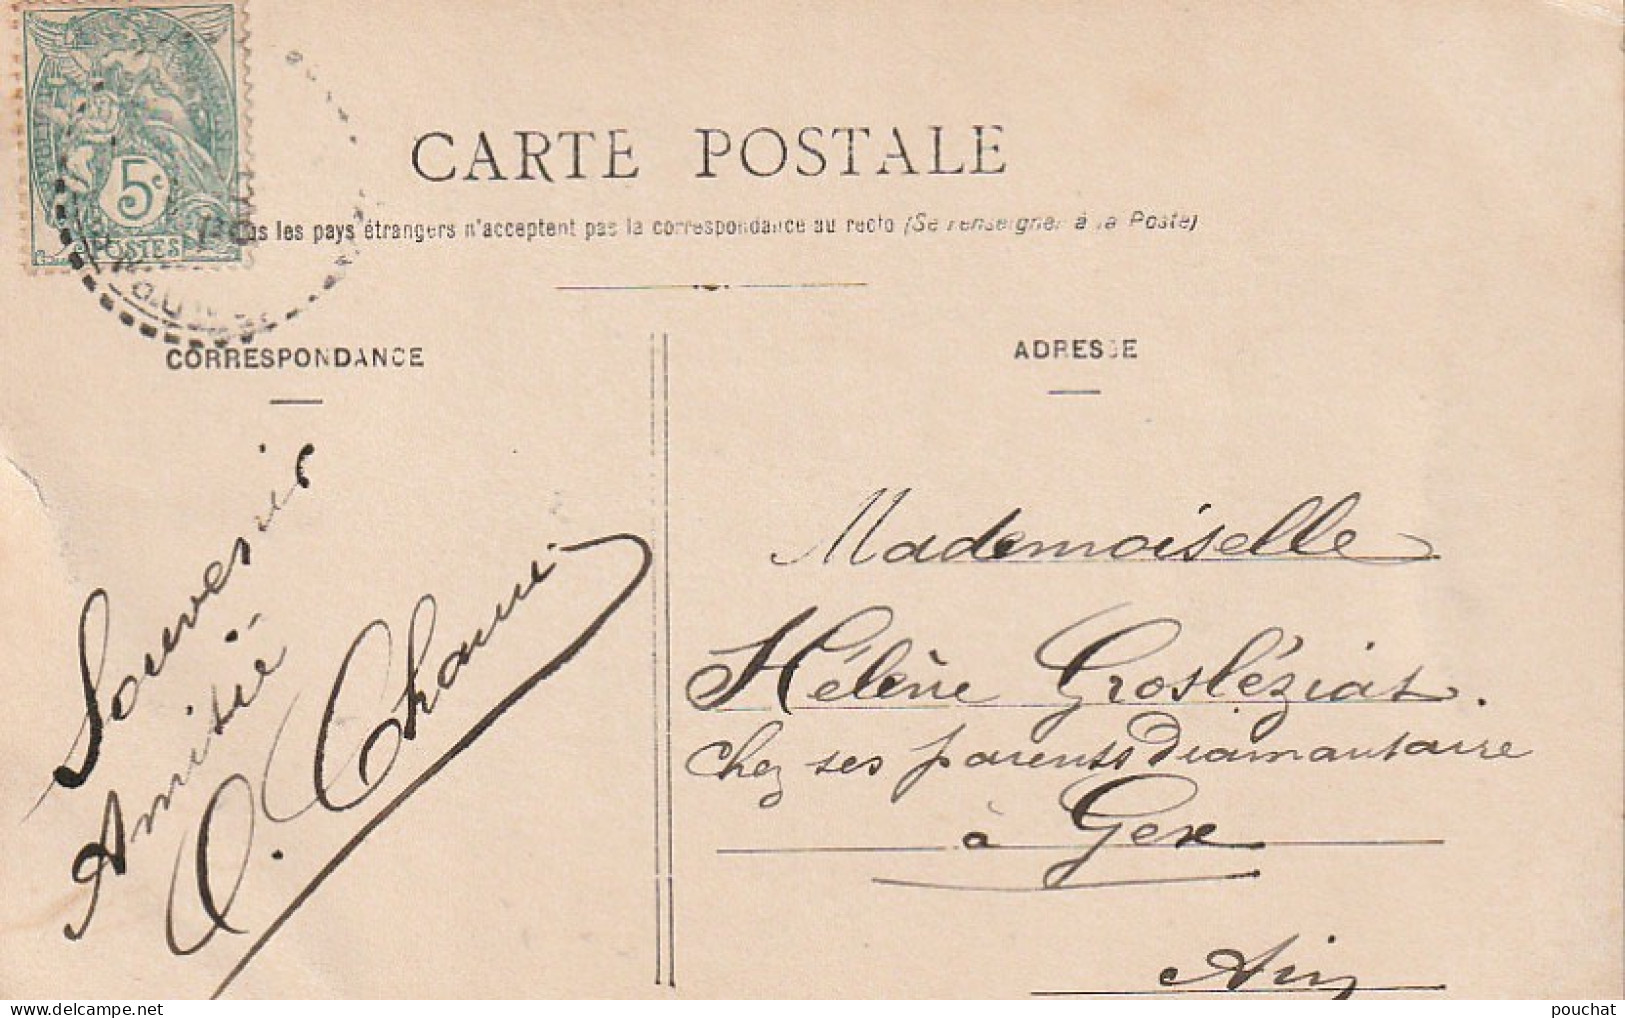 5c
POSTES
CARTE POSTALE
les pays étrangers n'acceptent pas la correspondance au recto (Se renseigner à la Poste)
CORRESPONDANCE
Souvenir
Amitié
ADRESSE
Mademoiselle
Hélène Grosléziat.
chez ses parents Diamantaire
à Gex
Ain
pouchat